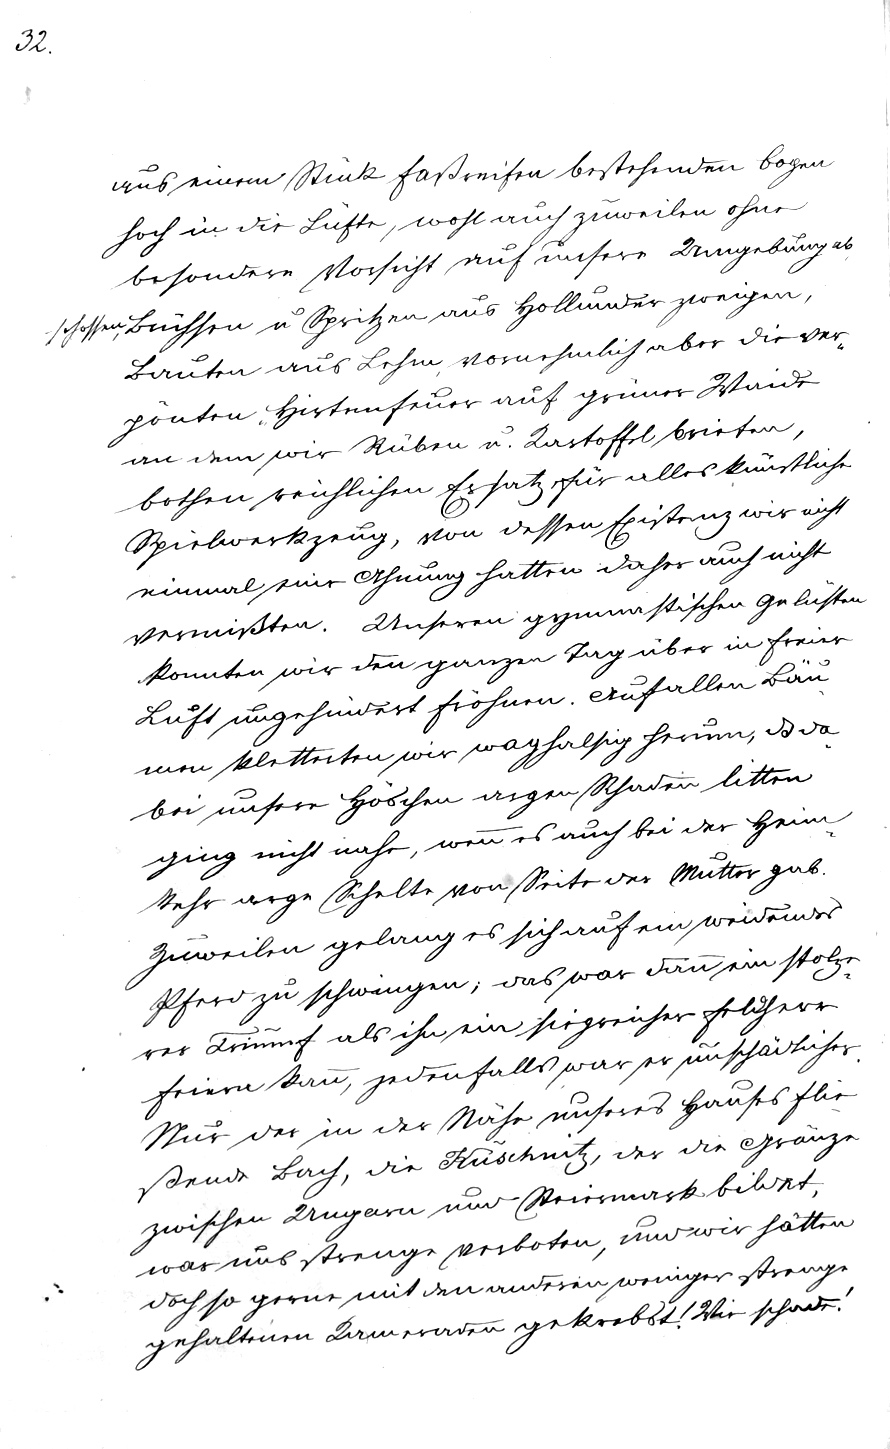 32.
aus einem Stück Faßreifen bestehenden Bogen
hoch in die Lüfte, wohl auch zuweilen ohne
besondere Vorsicht auf unsere Umgebung ab
schossen, Büchsen u Spritzen aus Hollunderzweigen,
Bauten aus Lehm, vornehmlich aber die ver-
pönten Hirtenfeuer auf grüner Waide
an dem wir Rüben u. Kartoffel brieten,
bothen reichlichen Ersatz für alles künstliche
Spielwerkzeug, von dessen Existenz wir nicht
einmal eine Ahnung hatten daher auch nicht
vermißten. Unseren gymnastischen Gelüsten
konnten wir den ganzen Tag über in freier
Luft ungehindert fröhnen. Auf allen Bäu
men kletterten wir waghalsig herum, dß da-
bei unsere Höschen argen Schaden litten
ging nicht nahe, wen̄ es auch bei der Heim-
kehr arge Schelte von Seite der Mutter gab.
Zuweilen gelang es sich auf ein weidendes
Pferd zu schwingen; das war dan̄ ein stolze-
rer Triumf als ihn ein siegreicher Feldherr
feiern kan̄, jedenfalls war er unschädlicher.
Nur der in der Nähe unseres Hauses flie
ßende Bach, die Kuschnitz, der die Gränze
zwischen Ungarn und Steiermark bildet,
war uns strenge verboten, und wir hätten
doch so gerne mit den anderen weniger strenge
gehaltenen Kameraden gekrebst! Wie schade!